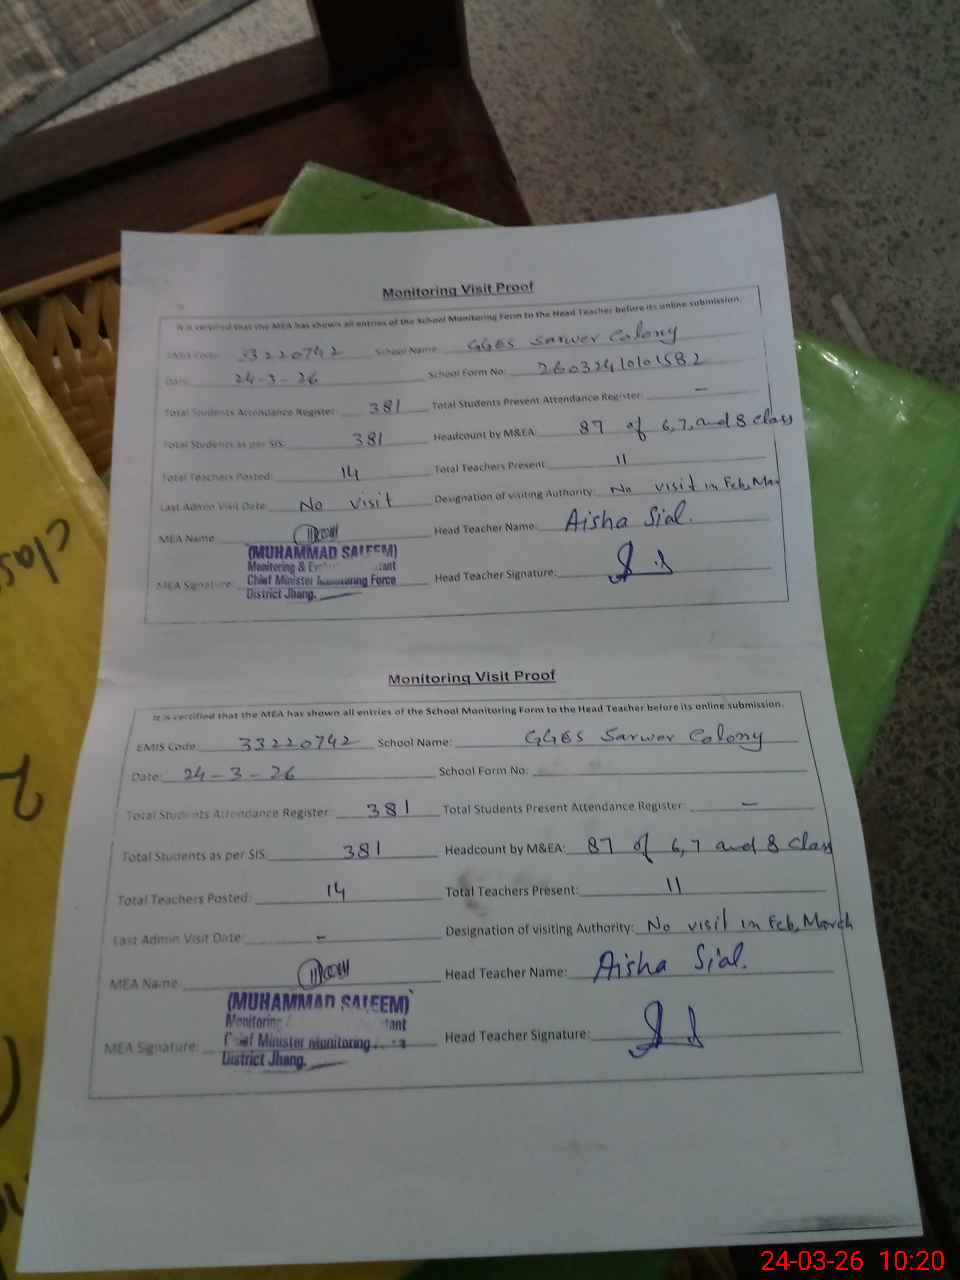 Monitoring Visit Proof
It is certified that the MEA has shown all entries of the School Monitoring Form to the Head Teacher before its online submission.
EMIS Code: 33220742 School Name: GGES Sarwer Colony
Date: 24-3-26 School Form No: 26032410101582
Total Students Attendance Register: 381 Total Students Present Attendance Register: —
Total Students as per SIS: 381 Headcount by M&EA: 87 of 6,7, and 8 Class
Total Teachers Posted: 14 Total Teachers Present: 11
Last Admin Visit Date: No visit Designation of visiting Authority: No visit in Feb, Mar
MEA Name Head Teacher Name: Aisha Sial.
(MUHAMMAD SALEEM)
Monitoring &
MEA Signature: Chief Minister Monitoring Force Head Teacher Signature:
District Jhang.
Monitoring Visit Proof
It is certified that the MEA has shown all entries of the School Monitoring Form to the Head Teacher before its online submission.
EMIS Code 33220742 School Name: GGES Sarwer Colony
Date: 24-3-26 School Form No:
Total Students Attendance Register: 381 Total Students Present Attendance Register: —
Total Students as per SIS: 381 Headcount by M&EA: 87 of 6,7 and 8 Class
Total Teachers Posted: 14 Total Teachers Present: 11
Last Admin Visit Date: - Designation of visiting Authority: No visit in Feb, March
MEA Name Head Teacher Name: Aisha Sial.
(MUHAMMAD SALEEM)
Monitoring
MEA Signature: Chief Minister Monitoring Head Teacher Signature:
District Jhang.
24-03-26 10:20